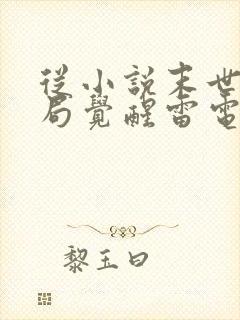 從小說末世
局覺醒雷電
黎玉曰